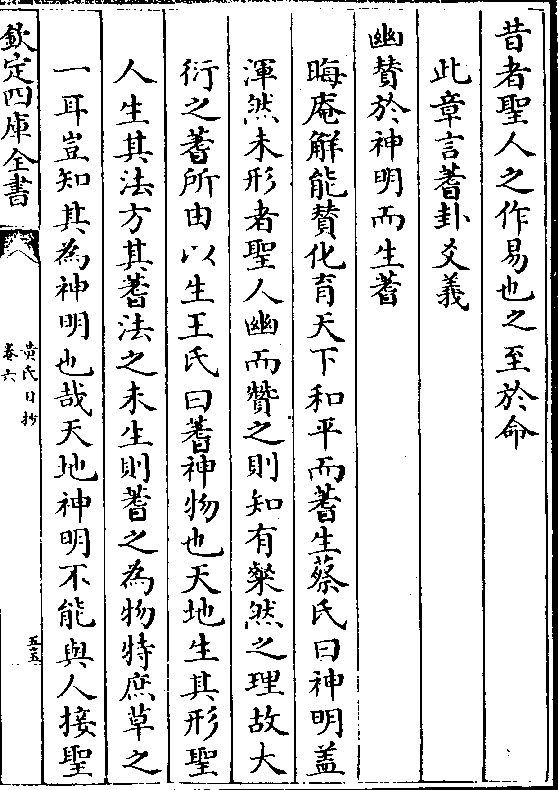 昔者聖人之作易也之至於命
此章言蓍卦爻義
幽贊於神明而生蓍
晦庵解能贊化育天下和平而蓍生蔡氏曰神明盖
渾然未形者聖人幽而贊之則知有粲然之理故大
衍之蓍所由以生王氏曰蓍神物也天地生其形聖
人生其法方其蓍法之未生則蓍之為物特庶草之
一耳豈知其為神明也哉天地神明不能與人接聖
欽定四庫全書
黄氏日抄
卷六
五五